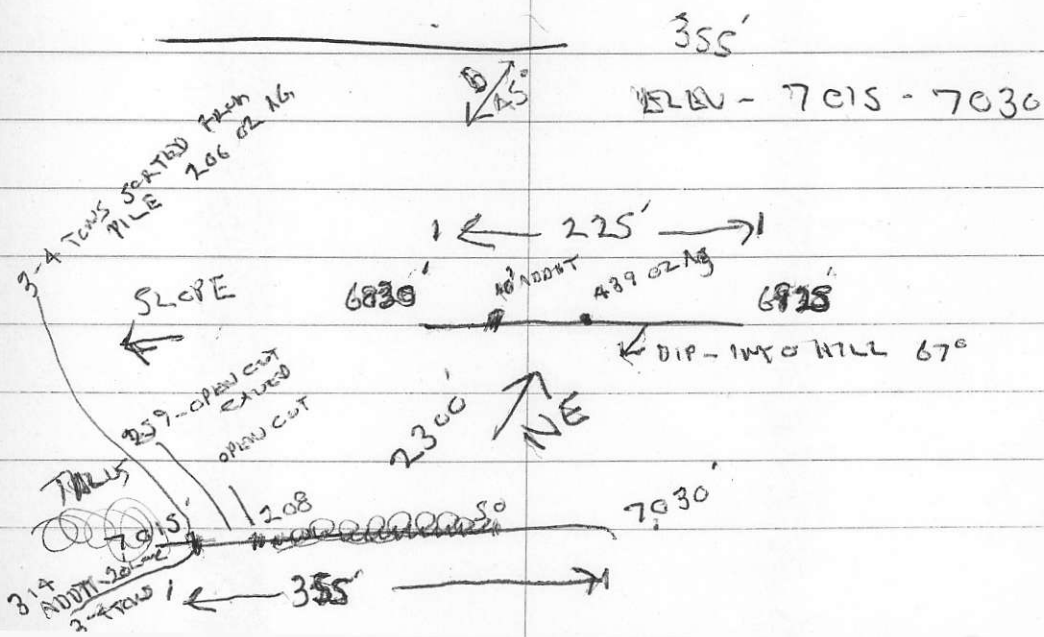 355'
D
45°
ELEV - 7015 - 7030
3-4 TONS SORTED FROM
PILE 206 OZ AG
225'
SLOPE
40' ADDIT
439 OZ Ag
DIP - INTO HILL 67°
259 - OPEN CUT
CAVED
OPEN CUT
2300'
NE
TALUS
7015'
208
50
7030'
ADDIT
3-4 TONS
355'